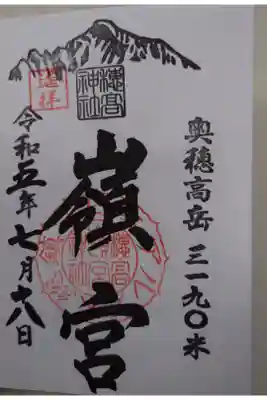 奥穂高岳 三一九〇米
穂高
神社
嶺宮
登拝
令和五年七月十八日